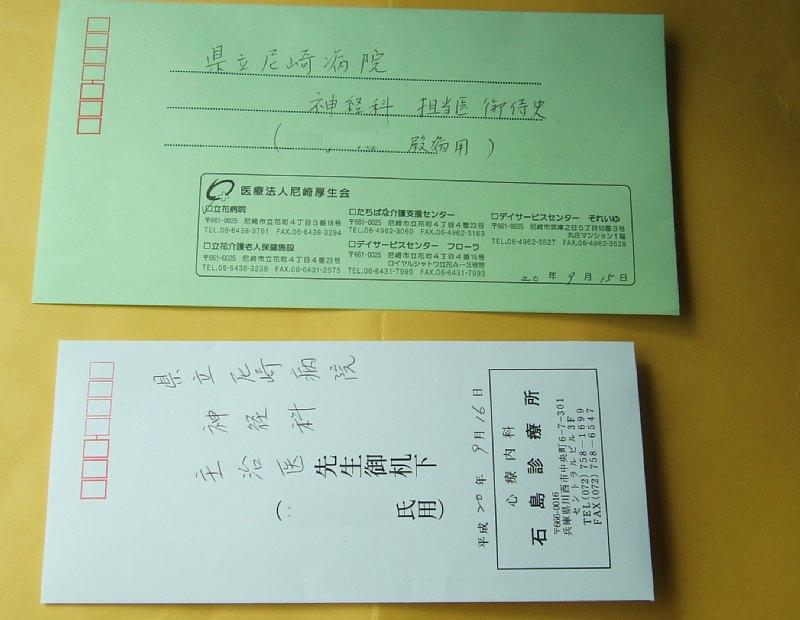 県立尼崎病院
神経科 担当医 御侍史
( 殿病用 )
医療法人尼崎厚生会
☐立花病院
〒661-0025 尼崎市立花町4丁目3番18号
TEL.06-6438-3761 FAX.06-6438-3294
☐立花介護老人保健施設
〒661-0025 尼崎市立花町4丁目4番23号
TEL.06-6436-3238 FAX.06-6431-2575
☐たちばな介護支援センター
〒661-0025 尼崎市立花町4丁目4番23号
TEL.06-4962-3060 FAX.06-4962-3163
☐デイサービスセンター フローラ
〒661-0025 尼崎市立花町4丁目4番16号
ロイヤルシャトウ立花A-3号室
TEL.06-6431-7990 FAX.06-6431-7993
☐デイサービスセンター それいゆ
〒661-0035 尼崎市武庫之荘5丁目10番3号
丸庄マンション1階
TEL.06-4962-3527 FAX.06-4962-3528
20年9月15日
県立尼崎病院
神経科
主治医 先生御机下
( 氏用)
平成20年9月16日
心療内科
石島診療所
〒666-0016
兵庫県川西市中央町6-7-301
セントラルビル3F
TEL(072)758-1699
FAX(072)758-6547